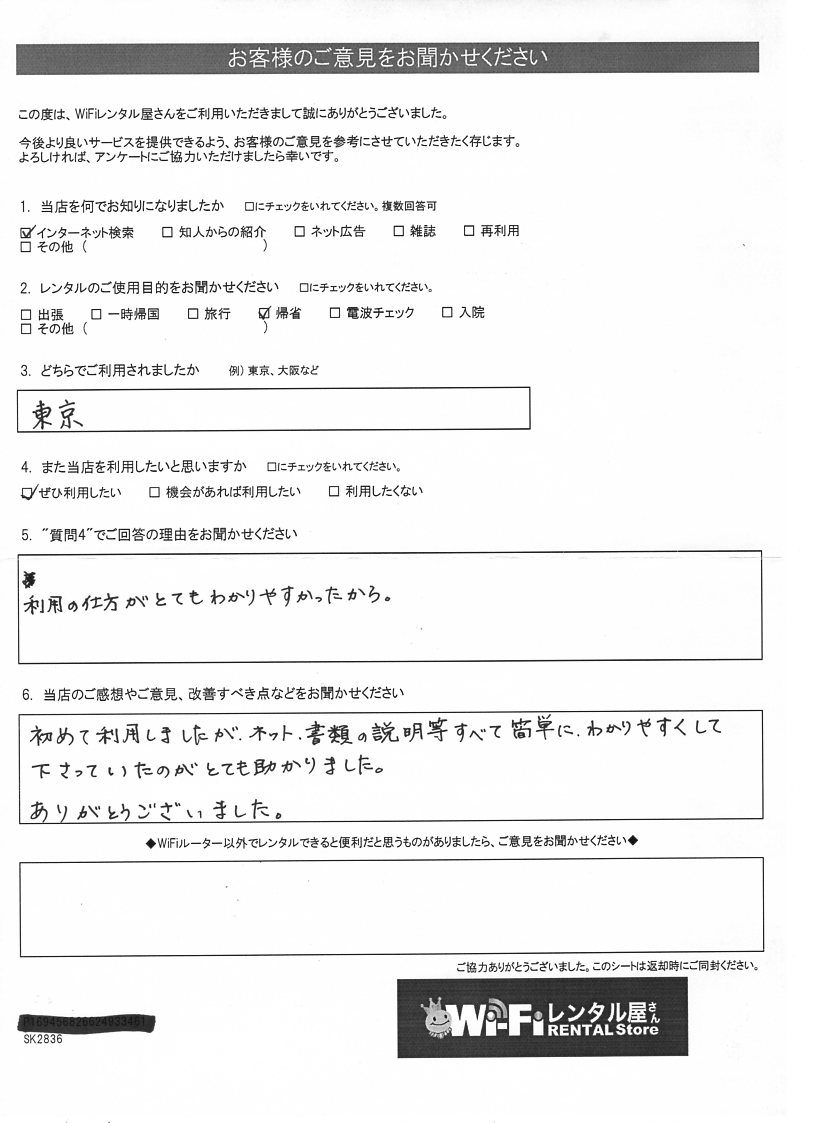 お客様のご意見をお聞かせください
この度は、WiFiレンタル屋さんをご利用いただきまして誠にありがとうございました。
今後より良いサービスを提供できるよう、お客様のご意見を参考にさせていただきたく存じます。
よろしければ、アンケートにご協力いただけましたら幸いです。
1. 当店を何でお知りになりましたか □にチェックをいれてください。複数回答可
☑インターネット検索 □ 知人からの紹介 □ ネット広告 □ 雑誌 □ 再利用
□ その他 ( )
2. レンタルのご使用目的をお聞かせください □にチェックをいれてください。
□ 出張 □ 一時帰国 □ 旅行 ☑ 帰省 □ 電波チェック □ 入院
□ その他 ( )
3. どちらでご利用されましたか 例) 東京、大阪など
東京
4. また当店を利用したいと思いますか □にチェックをいれてください。
☑ぜひ利用したい □ 機会があれば利用したい □ 利用したくない
5. ”質問4”でご回答の理由をお聞かせください
利用の仕方がとてもわかりやすかったから。
6. 当店のご感想やご意見、改善すべき点などをお聞かせください
初めて利用しましたが、ネット、書類の説明等すべて簡単に、わかりやすくして
下さっていたのがとても助かりました。
ありがとうございました。
◆WiFiルーター以外でレンタルできると便利だと思うものがありましたら、ご意見をお聞かせください◆
ご協力ありがとうございました。このシートは返却時にご同封ください。
Wi-Fiレンタル屋さん
RENTAL Store
SK2836